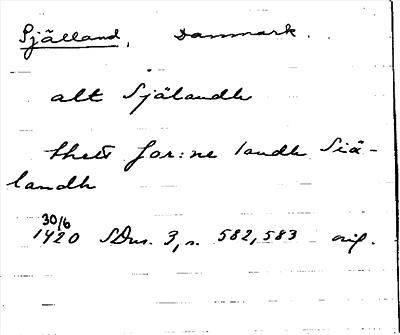 Själland, Danmark.
alt Själandh
thett for:ne landh Siä-
landh
30/6
1420 SDns. 3, s. 582, 583 orig.